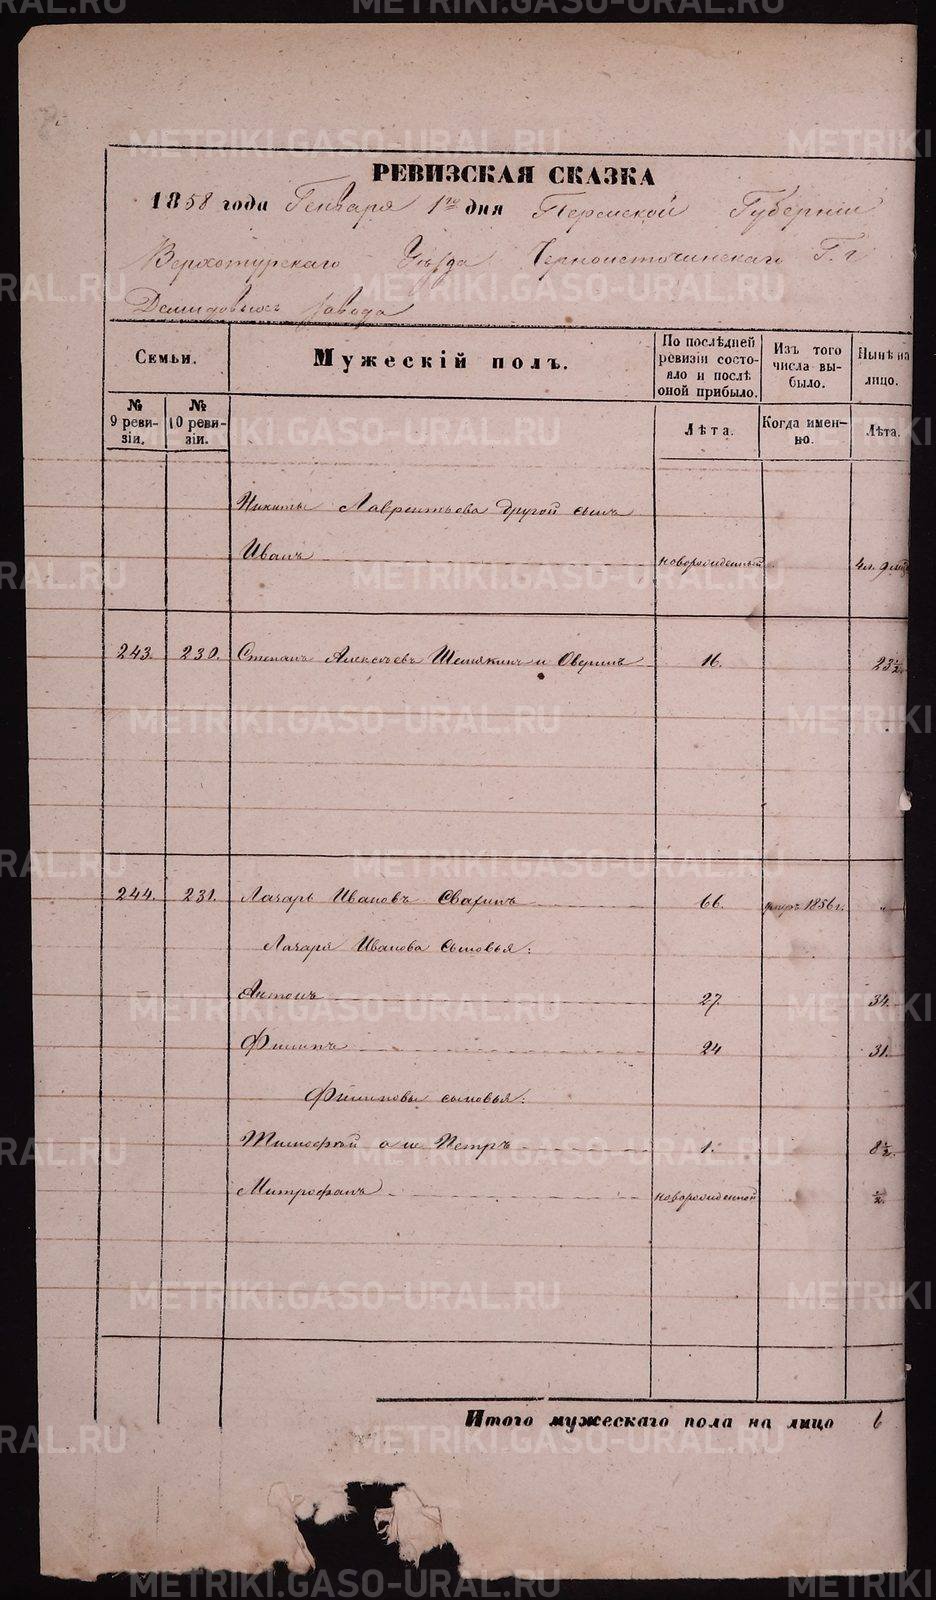 РЕВИЗСКАЯ СКАЗКА
1858 года Генваря 1го дня Пермской Губернiи
Верхотурскаго Уѣзда Черноисточинскаго Г.г
Демидовыхъ завода
Семьи.
№ 9 реви-
зiи.
№ 10 реви-
зiи.
Мужескiй полъ.
По послѣдней
ревизiи состо-
яло и послѣ
оной прибыло.
Лѣта.
Изъ того
числа вы-
было.
Когда имен-
но.
Нынѣ на
лицо.
Лѣта.
Никиты Лаврентьева другой сынъ
Иванъ новорожденный 4л.
243. 230. Степанъ Алексѣевъ Шемякинъ и Оверинъ 16. 23½
244. 231. Лазарь Ивановъ 66. умеръ 1856 г. „
Лазаря Иванова сыновья:
Антонъ 27. 34.
Филипъ 24 31.
Филиповы сыновья:
Тимофѣй о ш. Петръ 1. 8½.
Митрофанъ новорожденной ½.
Итого мужескаго пола на лицо 6
METRIKI.GASO-URAL.RU